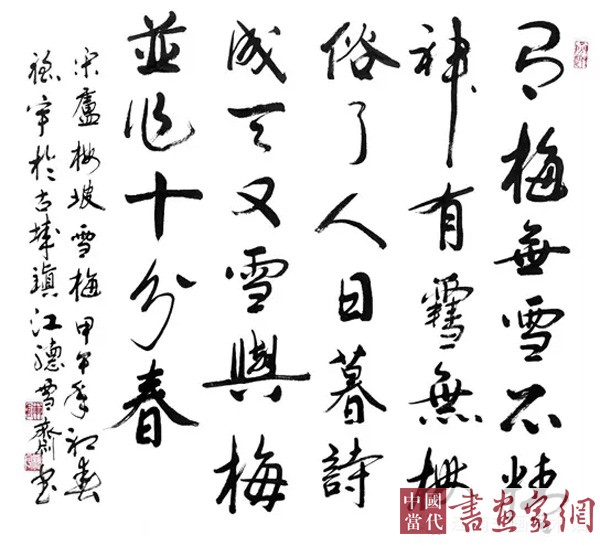 有梅無雪不精
神有䨮無梅
俗了人日暮詩
成天又雪與梅
並作十分春
宋盧梅坡雪梅甲午年初春
於古城鎮江聽雪齋書
中國
當代
書畫家網